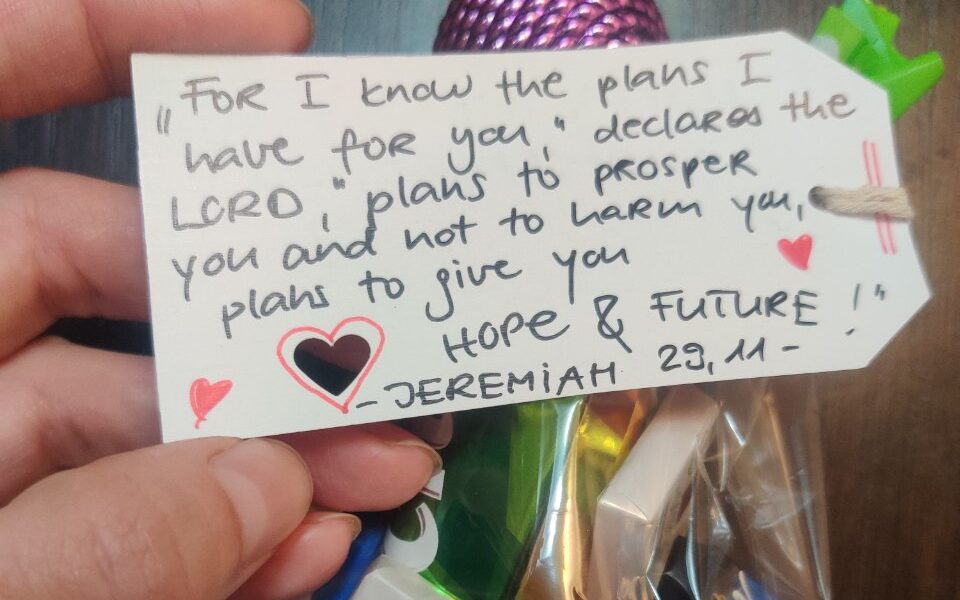 „FOR I know the plans I
have FOR you," declares the
LORD, "plans to PROSPER
you and not to harm you,
plans to give you
HOPE & FUTURE!"
- JEREMIAH 29,11 -